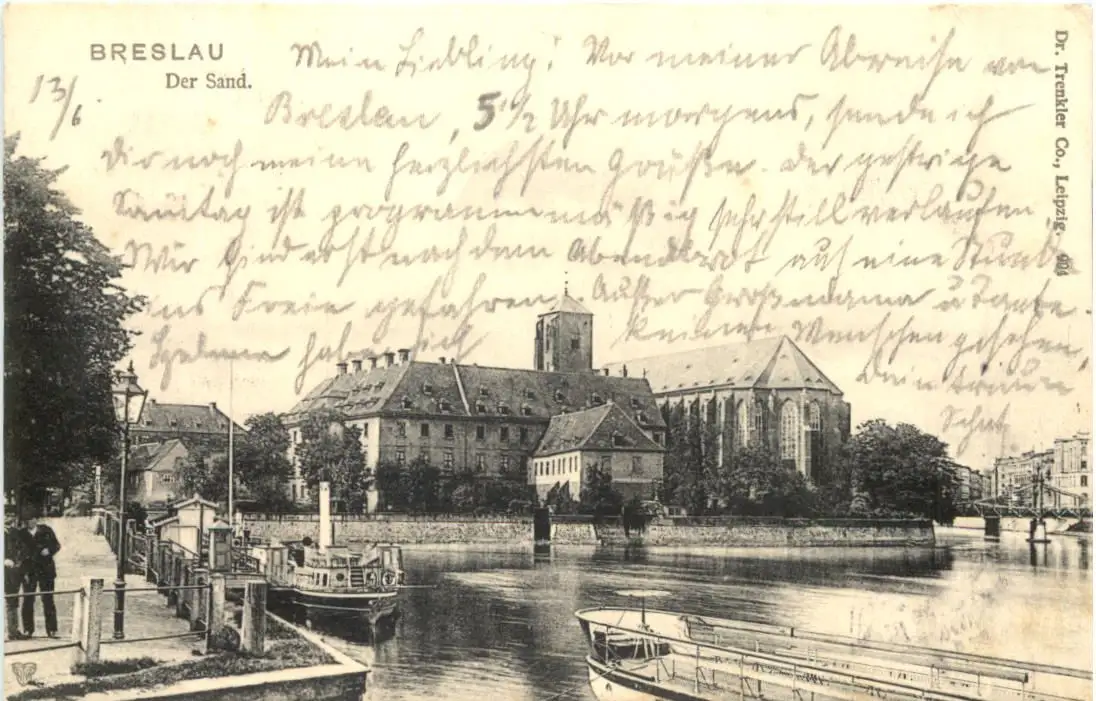 BRESLAU
Der Sand.
13/6
Mein Liebling! Vor meiner Abreise von
Breslau, 5 1/2 Uhr morgens, sende ich
Dir noch meine herzlichsten Grüße. Der gestrige
Sonntag ist programmmäßig sehr still verlaufen.
Wir sind erst nach dem Abendbrot auf eine Stunde
ins Freie gefahren. Außer Großmama u Tante
habe ich keinen Menschen gesehen.
Dein treuer
Schatz
Dr. Trenkler Co., Leipzig. 404